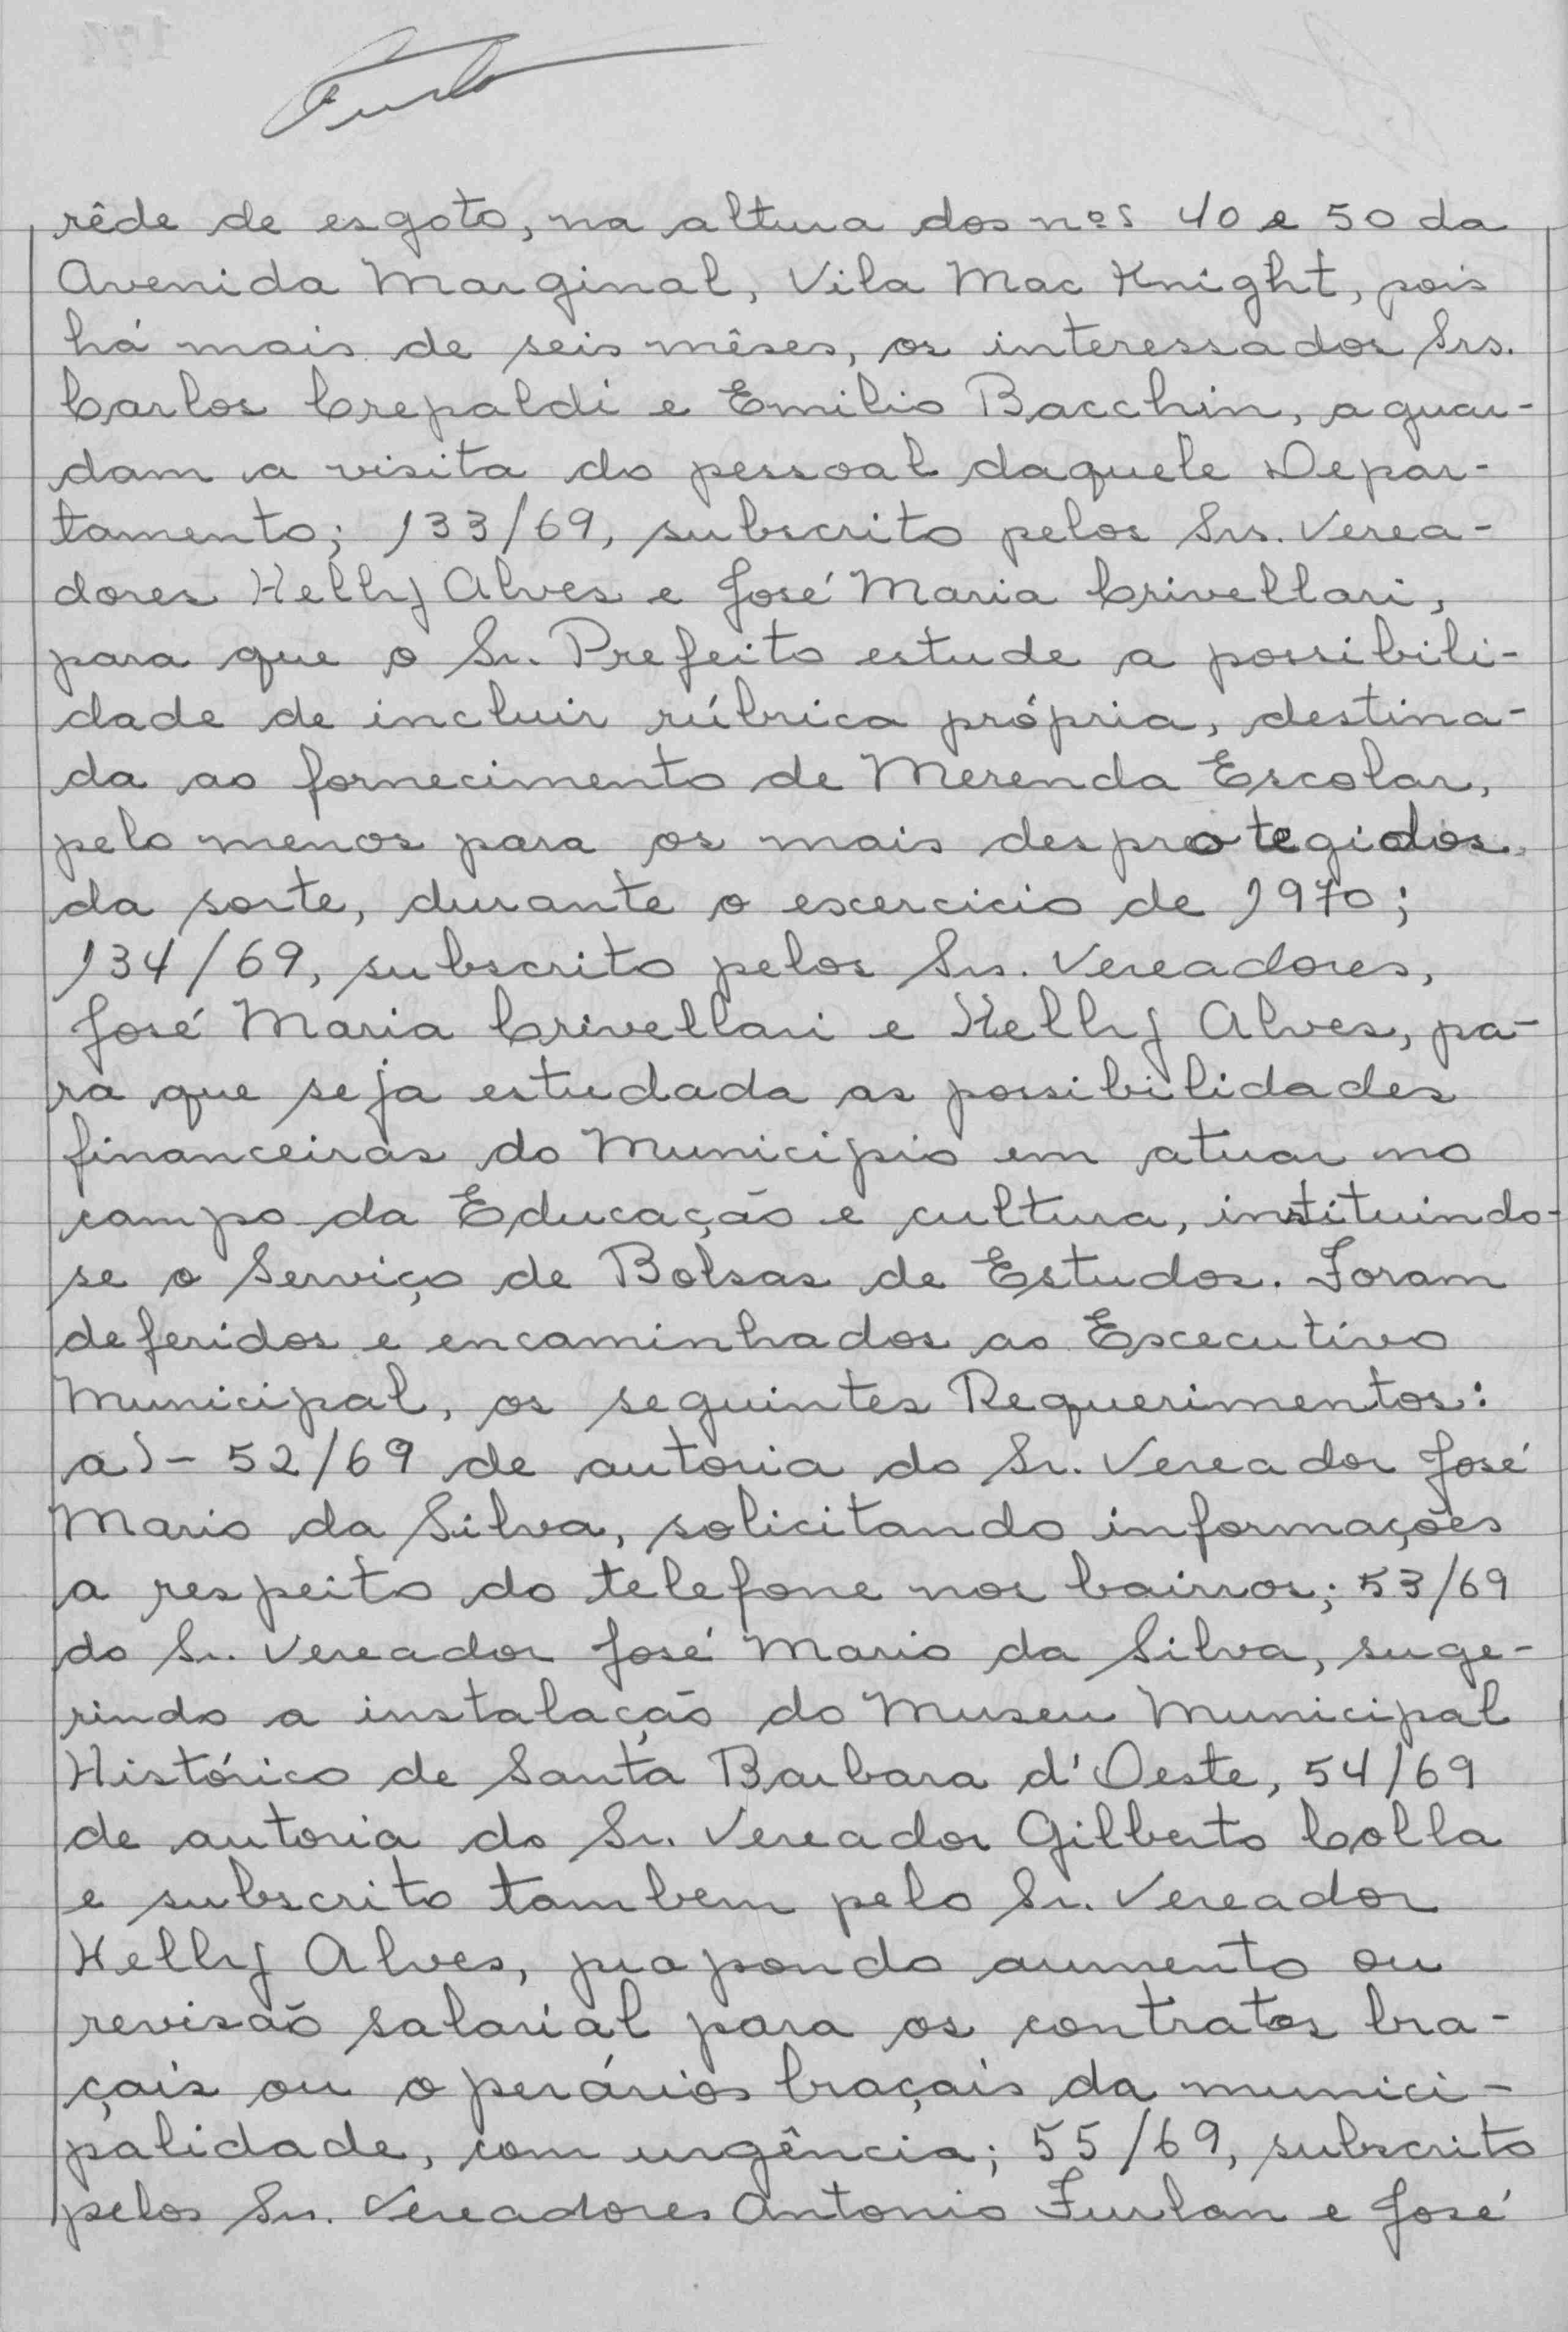 rêde de esgoto, na altura dos nºs 40 e 50 da
Avenida Marginal, Vila Mac Knight, pois
há mais de seis mêses, os interessados Srs.
Carlos Crepaldi e Emilio Bacchin, aguar-
dam a visita do pessoal daquele Depar-
tamento; 133/69, subscrito pelos Srs. Verea-
dores Kelly Alves e José Maria Crivellari,
para que o Sr. Prefeito estude a possibili-
dade de incluir rúbrica própria, destina-
da ao fornecimento de Merenda Escolar,
pelo menos para os mais desprotegidos
da sorte, durante o exercicio de 1970;
134/69, subscrito pelos Srs. Vereadores,
José Maria Crivellari e Kelly Alves, pa-
ra que seja estudada as possibilidades
financeiras do Municipio em atuar no
campo da Educação e cultura, instituindo-
se o Serviço de Bolsas de Estudos. Foram
deferidos e encaminhados ao Executivo
Municipal, os seguintes Requerimentos:
a)- 52/69 de autoria do Sr. Vereador José
Mario da Silva, solicitando informações
a respeito do telefone nos bairros; 53/69
do Sr. Vereador José Mario da Silva, suge-
rindo a instalação do Museu Municipal
Histórico de Santa Barbara d'Oeste, 54/69
de autoria do Sr. Vereador Gilberto Colla
e subscrito tambem pelo Sr. Vereador
Kelly Alves, propondo aumento ou
revisão salarial para os contratos bra-
çais ou operários braçais da munici-
palidade, com urgência; 55/69, subscrito
pelos Srs. Vereadores Antonio Furlan e José